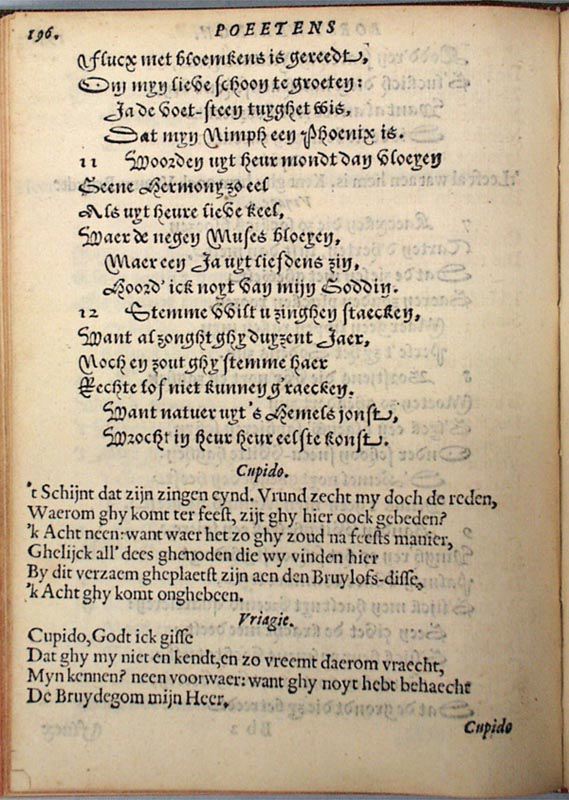 196.
POEETENS
Flucx met bloemkens is gereedt,
Om myn lieve schoon te groeten:
Ja de voet-steen tuyghet wis,
Dat myn Nimph een Phoenix is.
11 Woorden uyt heur mondt dan vloeyen
Geene Hermony zo eel
Als uyt heure lieve keel,
Waer de negen Muses bloeyen,
Maer een Ja uyt liefdens zin,
Hoord' ick noyt van mijn Goddin.
12 Stemme wilt u zinghen staecken,
Want al zonght ghy duyzent Jaer,
Noch en zout ghy stemme haer
Rechte lof niet kunnen g'raecken.
Want natuer uyt 's Hemels jonst,
Wrocht in heur heur eelste konst.
Cupido.
't Schijnt dat zijn zingen eynd. Vrund zecht my doch de reden,
Waerom ghy komt ter feest, zijt ghy hier oock gebeden?
'k Acht neen: want waer het zo ghy zoud na feests manier,
Ghelijck all' dees ghenoden die wy vinden hier
By dit verzaem gheplaetst zijn aen den Bruylofs-disse,
'k Acht ghy komt onghebeen.
Vriagie.
Cupido, Godt ick gisse
Dat ghy my niet en kendt, en zo vreemt daerom vraecht,
Myn kennen? neen voorwaer: want ghy noyt hebt behaecht
De Bruydegom mijn Heer.
Cupido